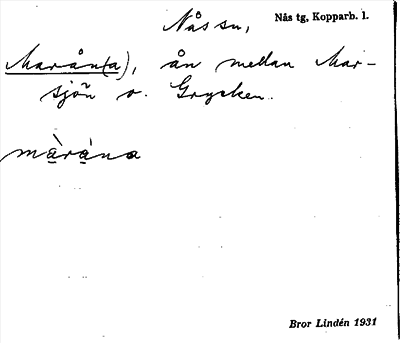 Nås sn,
Nås tg, Kopparb. l.
Marån(a), ån mellan Mar-
sjön o. Grycken.
màràna
Bror Lindén 1931